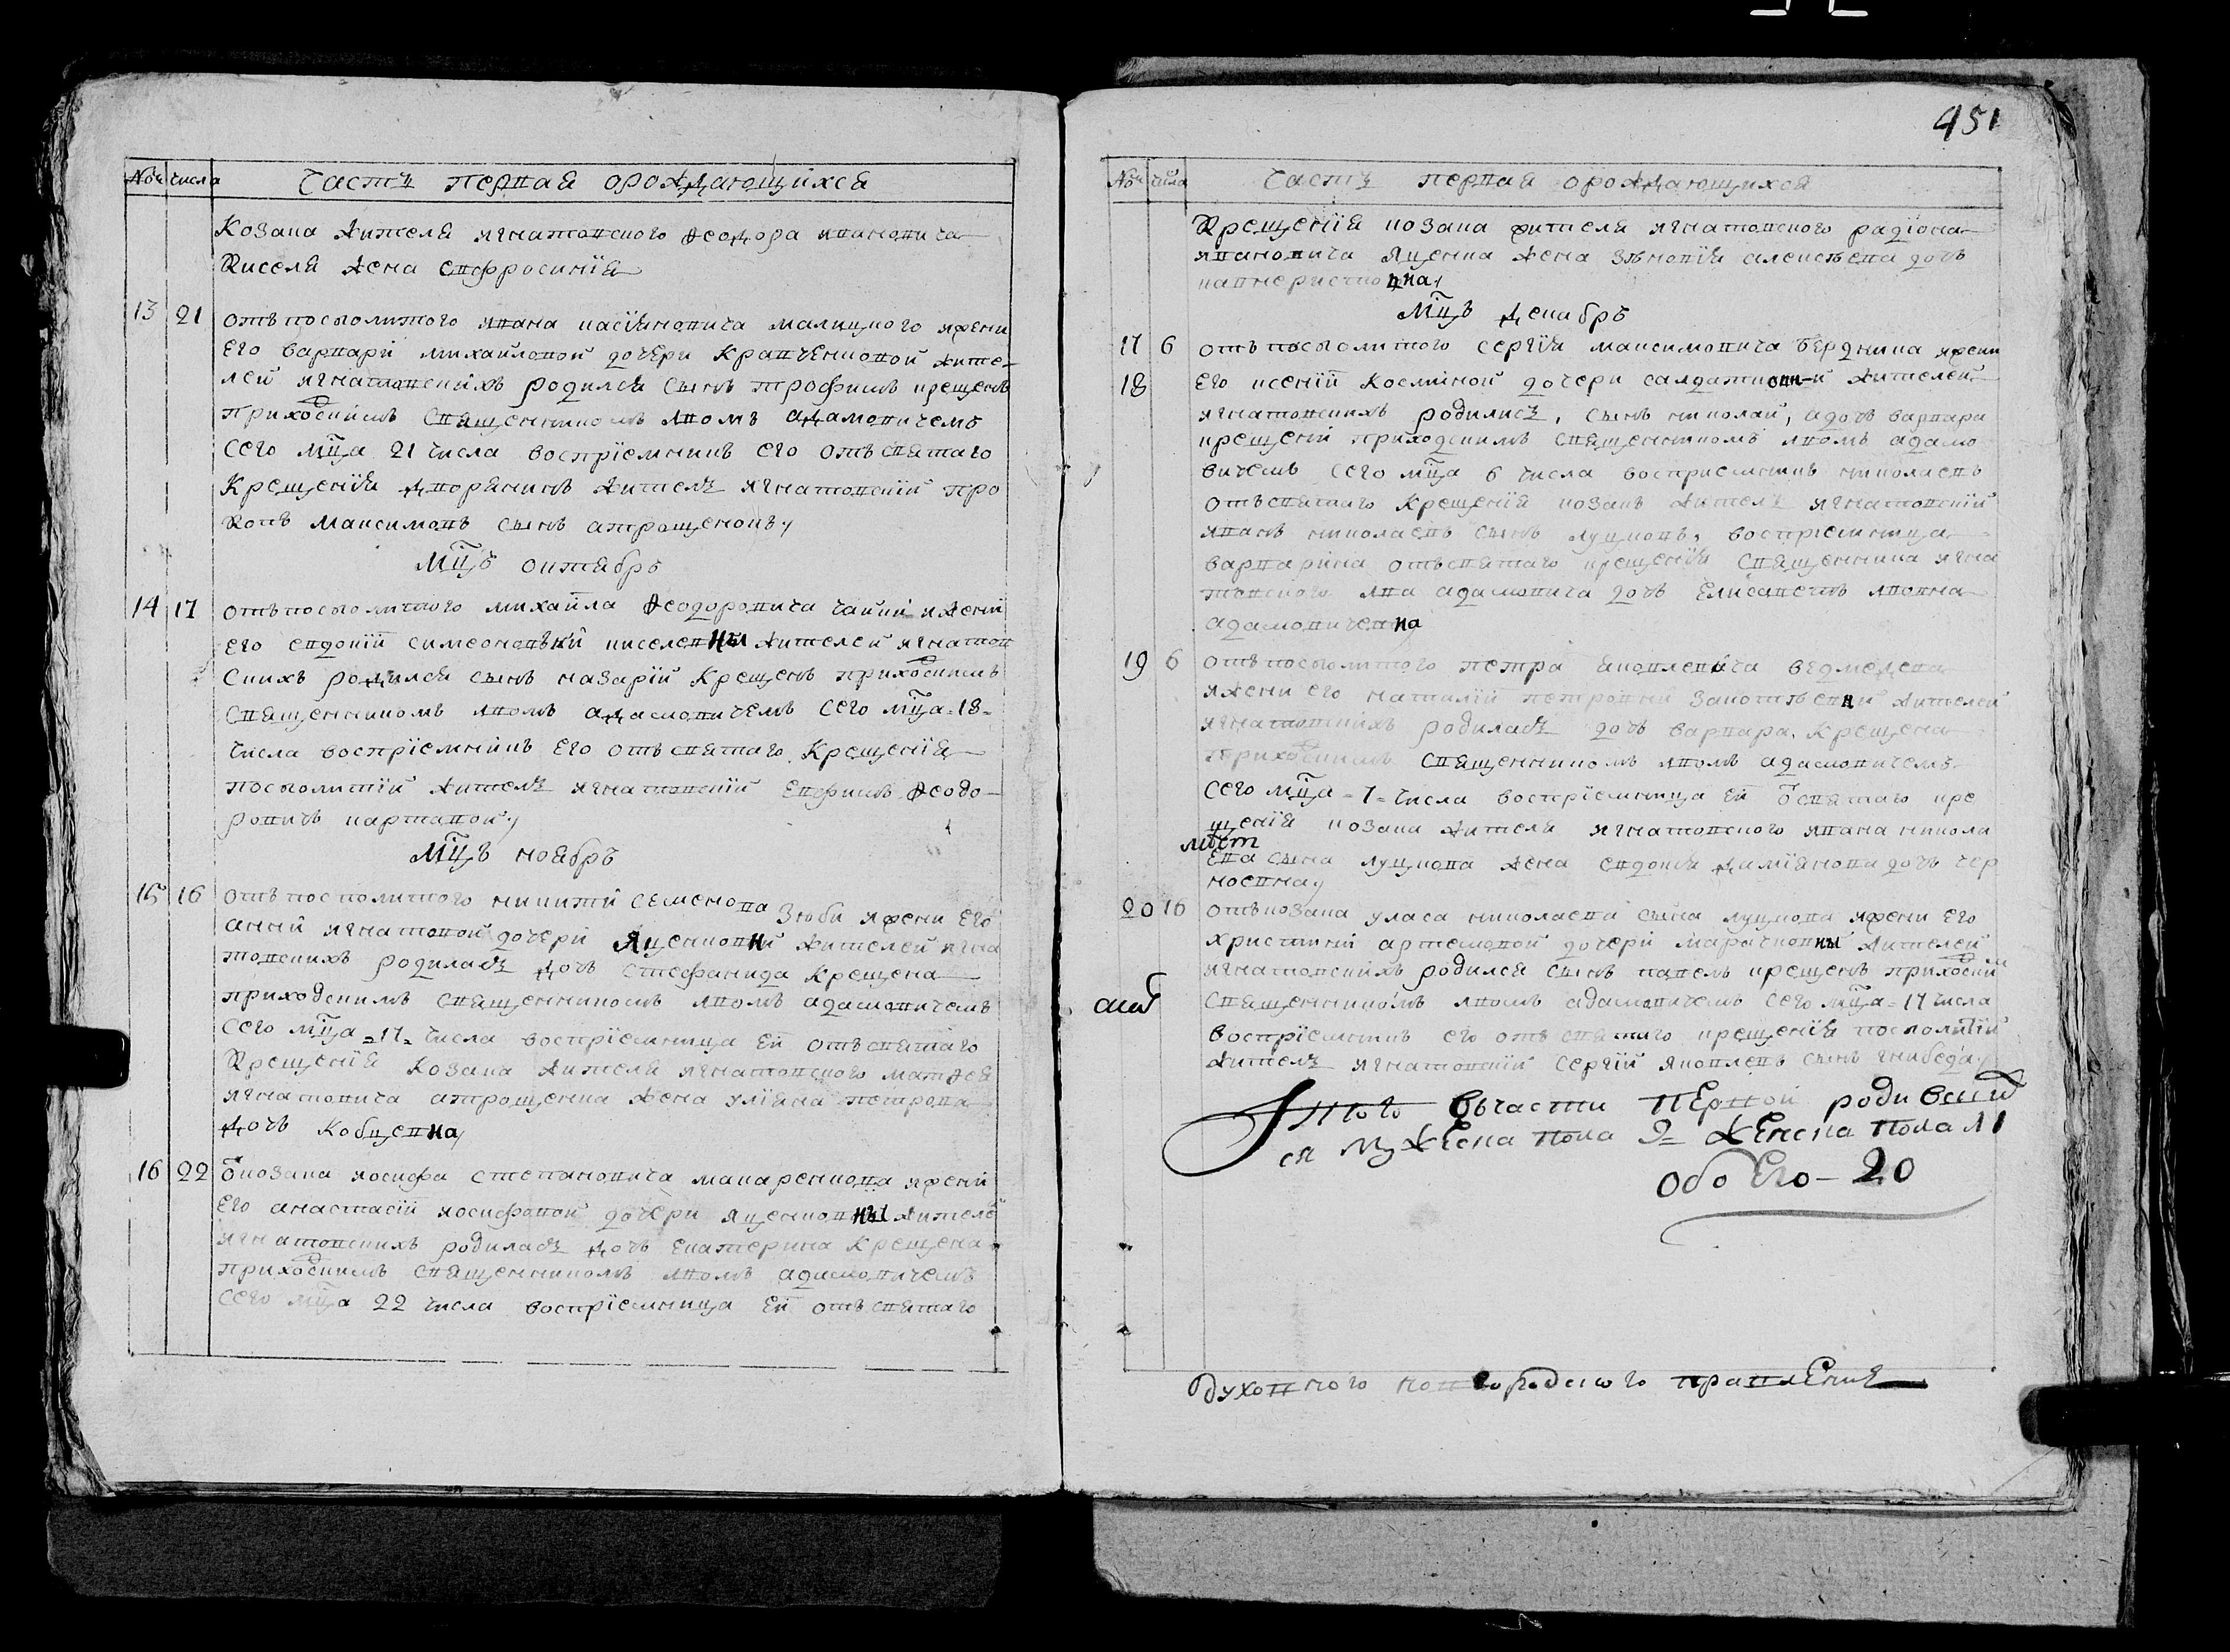 No числа Часть первая ораждающихся
Козака жителя игнатовского Ѳеодора ивановича
Киселя жена евфросинїя
13 21 отъ посполитого ивана касїяновича малицкого ижени
его варвари михайловой дочери Кравченковой жите-
лей игнатовскихъ родился сынъ трофимъ крещенъ
приходскимъ священникомъ львомъ адамовичемъ
сего мца 21 числа воспрїемникъ его отъ святаго
Крещенїя дворянинъ житель игнатовскїй про
копъ максимовъ сынъ атрощенокъ
Мцъ октябръ
14 17 отъ посполитого михайла Ѳеодоровича чайки ижени
его евдокїи симеоновни киселевны жителей игнатов
скихъ родился сынъ назарїй Крещенъ приходскимъ
священникомъ львомъ адамовичемъ сего мца =18=
числа воспрїемникъ его отъ святаго Крещенїя
посполитїй житель игнатовскїй Евфимъ Ѳеодо-
ровичъ картавой
Мцъ ноябръ
15 16 отъ посполитого никити семенова Зюби ижени его
анни игнатовой дочери Яценковни жителей игна
товскихъ родилась дочъ стефанида Крещена
приходскимъ священникомъ львомъ адамовичемъ
сего мца =17= числа воспрїемница ей отъ святаго
Крещенїя Козака жителя игнатовского матѳея
игнатовича атрощенка жена улїяна петрова
дочъ Кобцевна
16 22 ѿ козака иосифа степановича макаренкова ижени
его анастасїи иосифовой дочери яценковны жителей
игнатовскихъ родилась дочъ екатерина Крещена
приходскимъ священникомъ львомъ адамовичемъ
сего мца 22 числа воспрїемница ей отъ святаго
451
No числа Часть первая ораждающихся
Крещенїя козака жителя игнатовского радїона
ивановича Яценка жена зѣновїя алексѣева дочъ
капнеристовна
Мцъ декабръ
17 6 отъ посполитого сергїя максимовича бердника ижени
18 его ксенїи Косминой дочери салдатки жителей
игнатовскихъ родились, сынъ николай, адочъ варвара
крещени приходскимъ священникомъ львомъ адамо
вичемъ сего мца 6 числа восприемникъ николаевъ
отъ святаго Крещенїя козакъ житель игнатовскїй
иванъ николаевъ сынъ луцковъ, воспрїемница
варварина отъ святаго крещенїя Священника игна
товского льва адамовича дочъ Елисаветъ львовна
адамовичевна
19 6 отъ посполитого петра яковлевича ведмедева
ижени его наталїи петровни закотѣевни жителей
игнатовскихъ родилась дочъ варвара. Крещена
приходскимъ священникомъ львомъ адамовичемъ
сего мца =7= числа воспрїемница ей ѿ святаго кре
щенїя козака жителя игнатовского ивана никола
листъ
ева сына луцкова жена евдокїя дамїянова дочъ чер
ноевна
20 16 отъ козака уласа николаева сына луцкова ижени его
христини артемовой дочери марачковны жителей
игнатовскихъ родился сынъ павелъ крещенъ приходским
священникомъ львомъ адамовичемъ сего мца =17 числа
воспрїемникъ его отъ святаго крещенїя посполитїй
житель игнатовскїй сергїй яковлевъ сынъ гнибеда
Итого Въчасти первой родивших
ся мужеска пола 9= Женска пола 11
обоего – 20
духовного новгородского правленїя